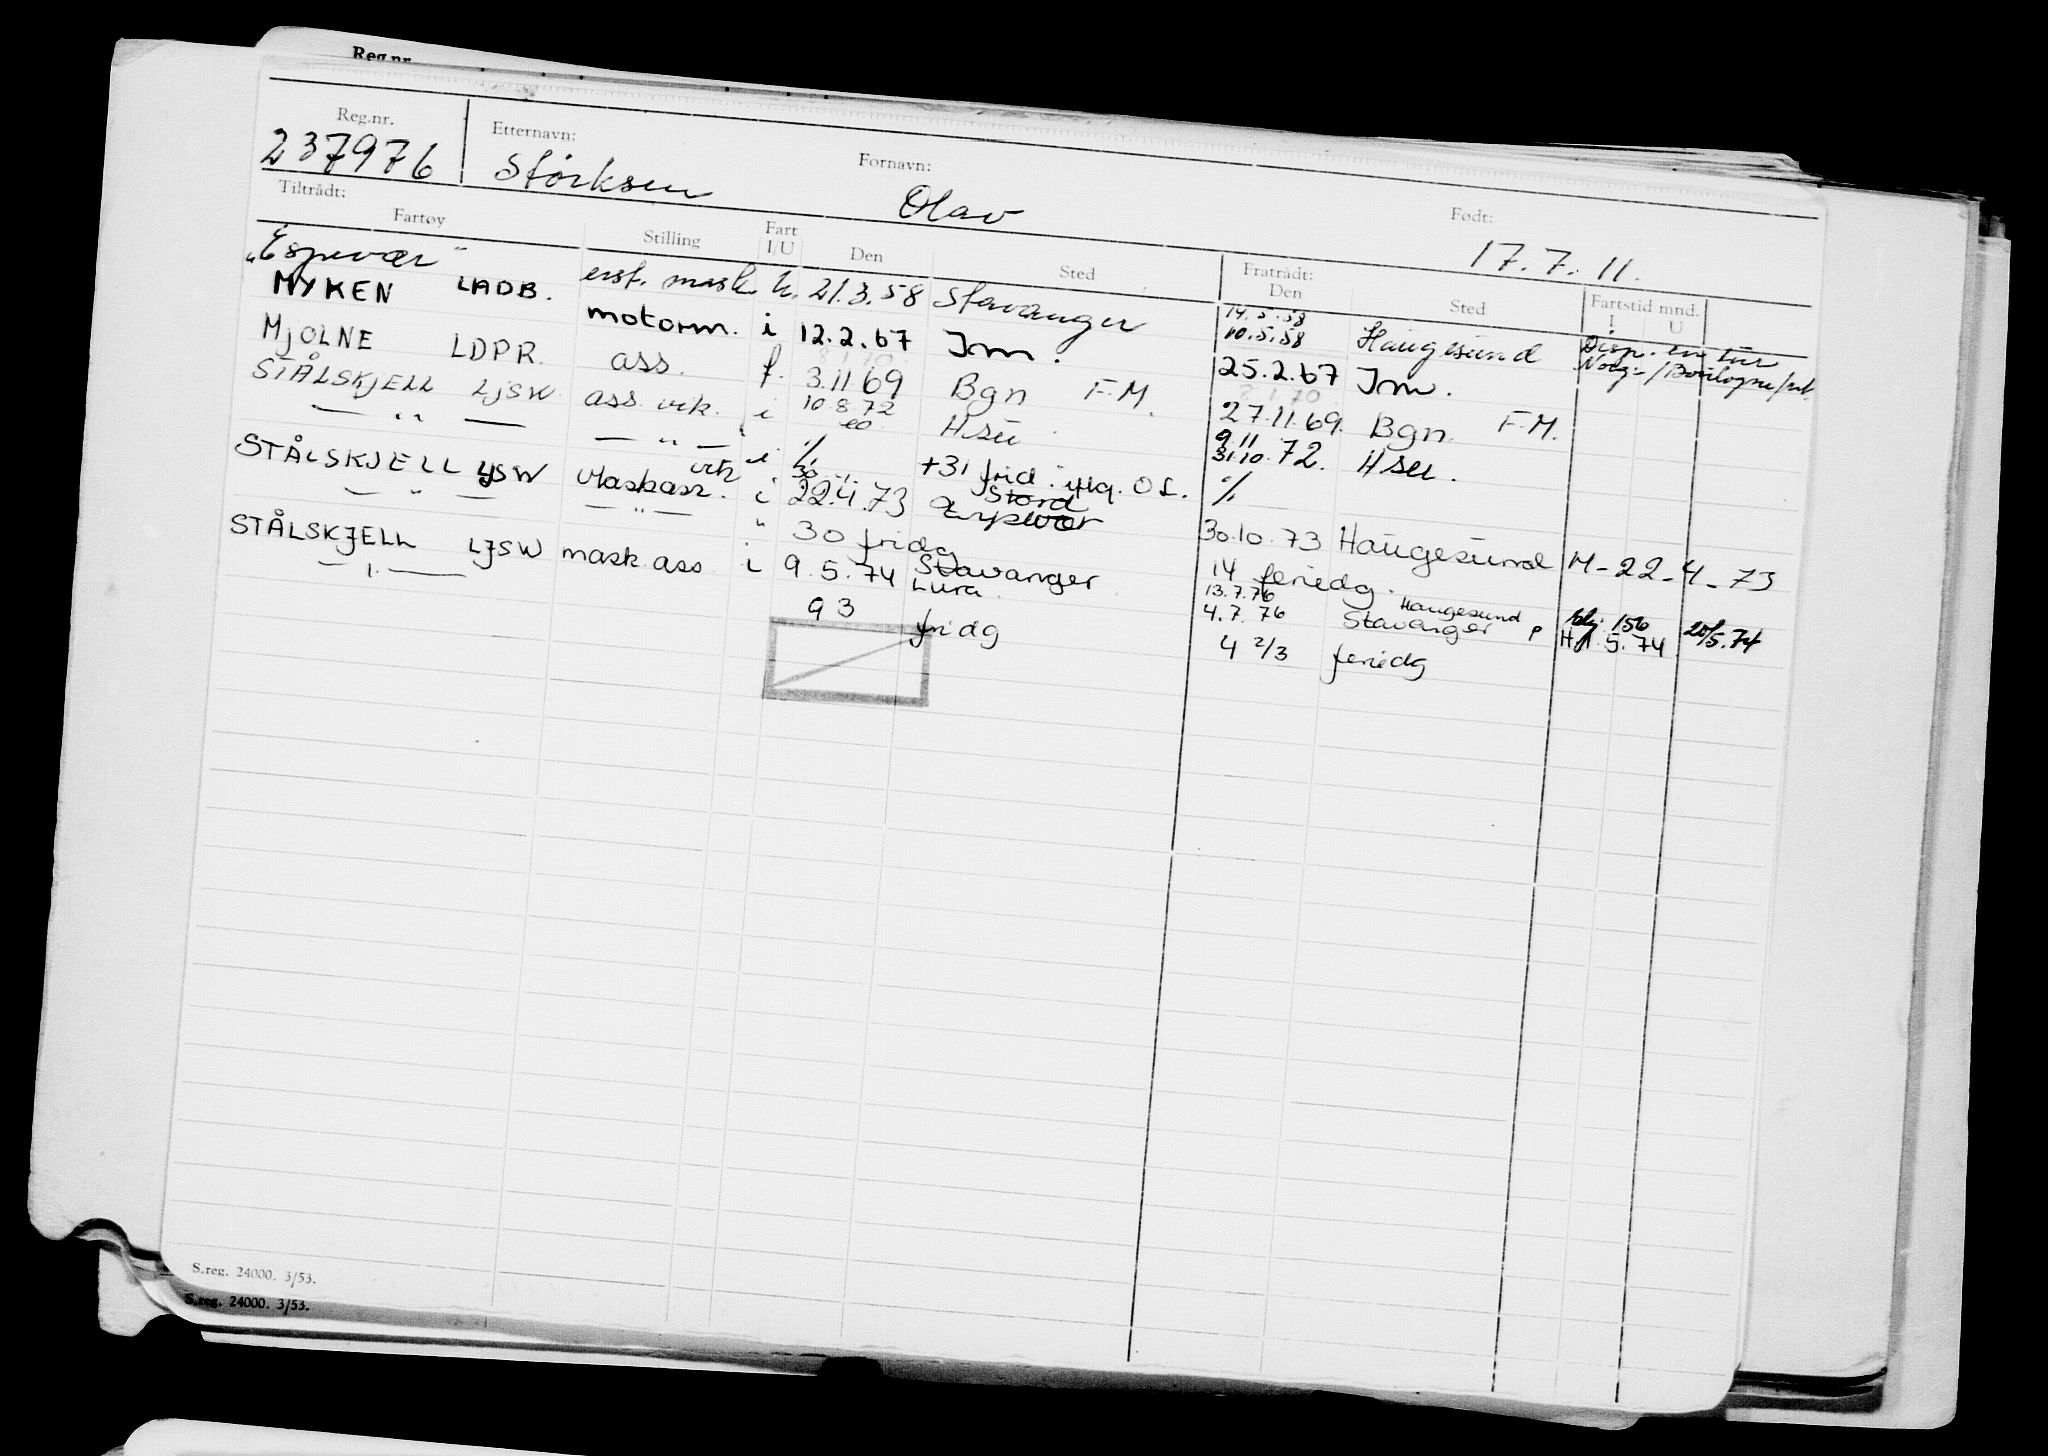 Reg.nr.
Reg.nr. Etternavn: Fornavn: Født:
237976 Størksen Olav 17.7.11.
Tiltrådt: Fratrådt:
Fartøy Stilling Fart I/U Den Sted Den Sted Fartstid mnd. I U
"Espevær" erst. mask. u. 21.3.58 Stavanger 14.5.58 10.5.58 Haugesund Disp. en tur Norge/Boulogne/
MYKEN LADB. motorm. i 12.2.67 Irm. 25.2.67 Irm.
MJOLNE LDPR. ass. f. 3.11 69 Bgn F.M. 27.11.69. Bgn. F.M.
STÅLSKJELL LJSW ass. vik. i 10 8 72 Hsu 9.11 31.10.72. Hsu.
— " — — " — i % +31 frid. % 
STÅLSKJELL LJSW Maskass. vik i 30 22.4.73 Stord Espevær 30.10.73 Haugesund M-22-4-73
— " — — " — " 30 fridg 14 feriedg.
STÅLSKJELL LJSW mask.ass i 9.5.74 Stavanger Lura 13.7.76 4.7.76 Haugesund Stavanger P 156 5.74 20/5.74
— " — 93 fridg 4 2/3 feriedg
S.reg. 24000. 3/53.
S.reg. 24000. 3/53.